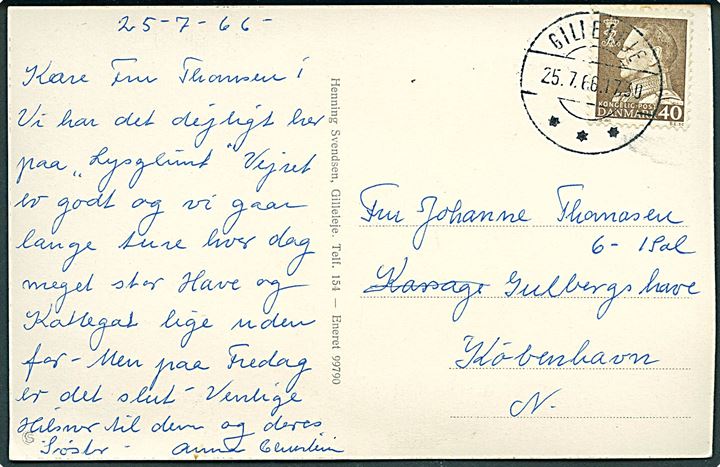 25-7-66-
Kære Fru Thomsen!
Vi har det dejligt her
paa "Lysglimt" Vejret
er godt og vi gaar
lange ture hver dag
meget stor Have og
Kattegat lige uden
for - Men paa Fredag
er det slut - Venlige
Hilsner til dem og deres
Søster - Anna
Henning Svendsen, Gilleleje. Telf. 154 — Eneret 99790
GILLELEJE
25.7.66.17.30
KONGELIG POST
DANMARK 40
Fru Johanne Thomasen
6 - 1 Sal
Gulbergs have
København
N.